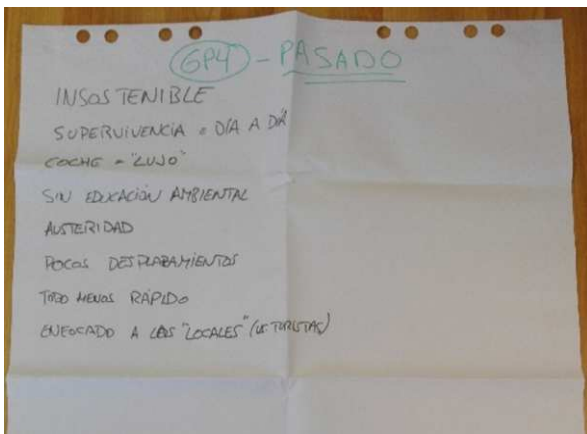 GP4 - PASADO
INSOSTENIBLE
SUPERVIVENCIA o DÍA A DÍA
COCHE = "LUJO"
SIN EDUCACIÓN AMBIENTAL
AUSTERIDAD
POCOS DESPLAZAMIENTOS
TODO MENOS RÁPIDO
ENFOCADO A LOS "LOCALES" (VS. TURISTAS)